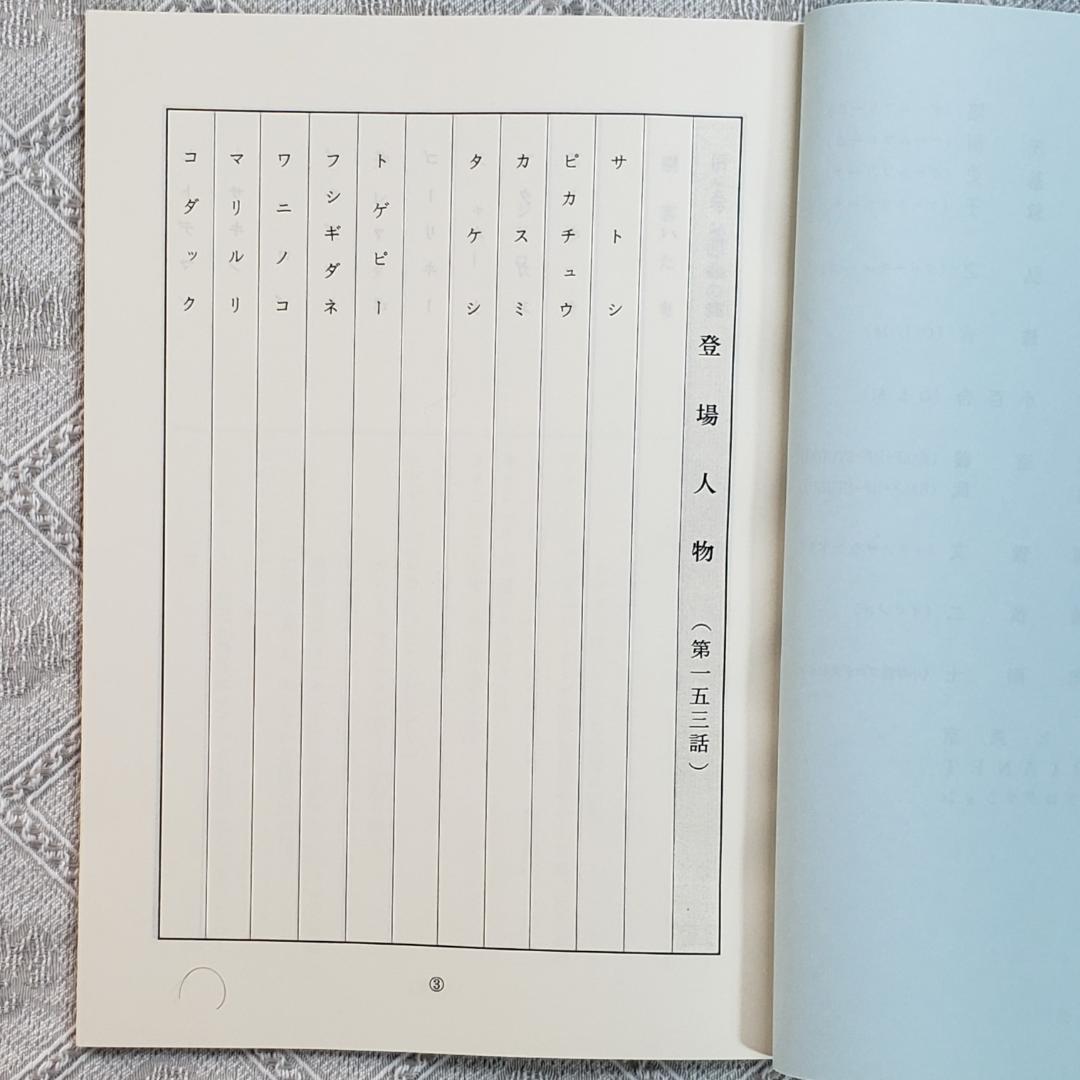 登場人物（第一五三話）
サトシ
ピカチュウ
カスミ
タケシ
トゲピー
フシギダネ
ワニノコ
マリルリ
コダック
③